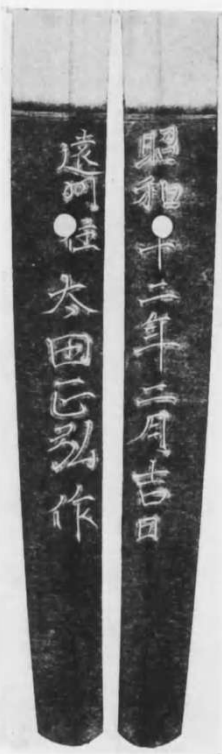 昭和十二年二月吉日
遠州住太田正弘作